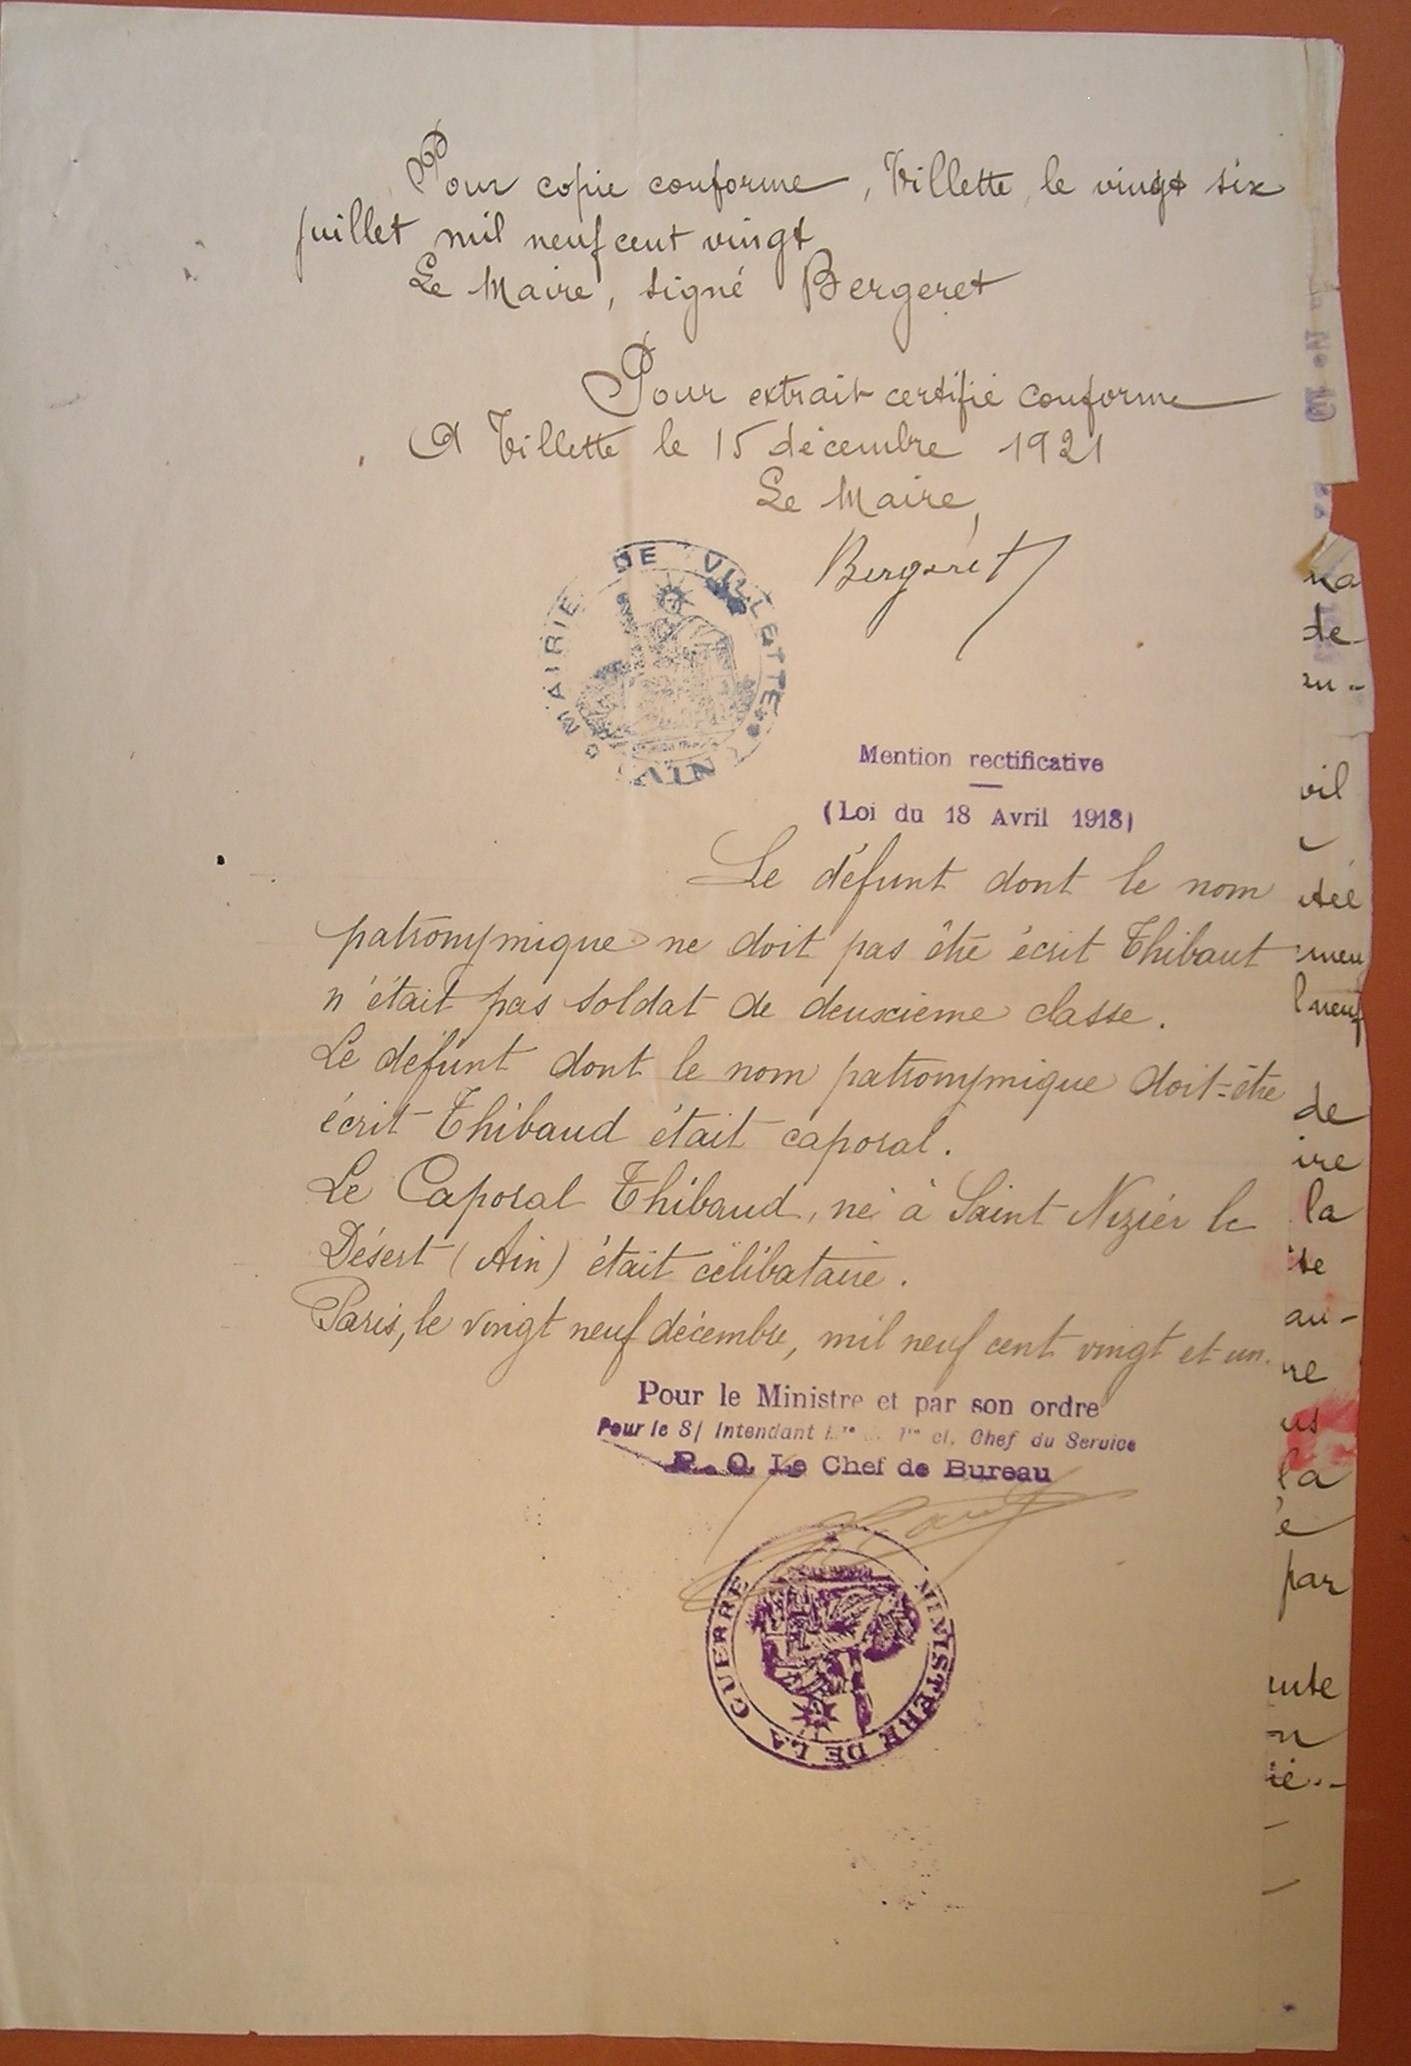 Pour copie conforme, Villette, le vingt six
juillet mil neuf cent vingt
Le Maire, signé Bergeret
Pour extrait certifié conforme
A Villette le 15 décembre 1921
Le Maire,
Bergeret
MAIRIE DE VILLETTE
AIN
Mention rectificative
(Loi du 18 Avril 1918)
Le défunt dont le nom
patronymique ne doit pas être écrit Thibaut
n'était pas soldat de deuxième classe.
Le défunt dont le nom patronymique doit=être
écrit Thibaud était caporal.
Le Caporal Thibaud, né à Saint Nizier le
Désert (Ain) était célibataire.
Paris, le vingt neuf décembre, mil neuf cent vingt et un.
Pour le Ministre et par son ordre
Pour le S/ Intendant cl. Chef du Service
P. O. Le Chef de Bureau
MINISTERE DE LA GUERRE
de-
vil
neuf
de
ire
la
au-
la
par